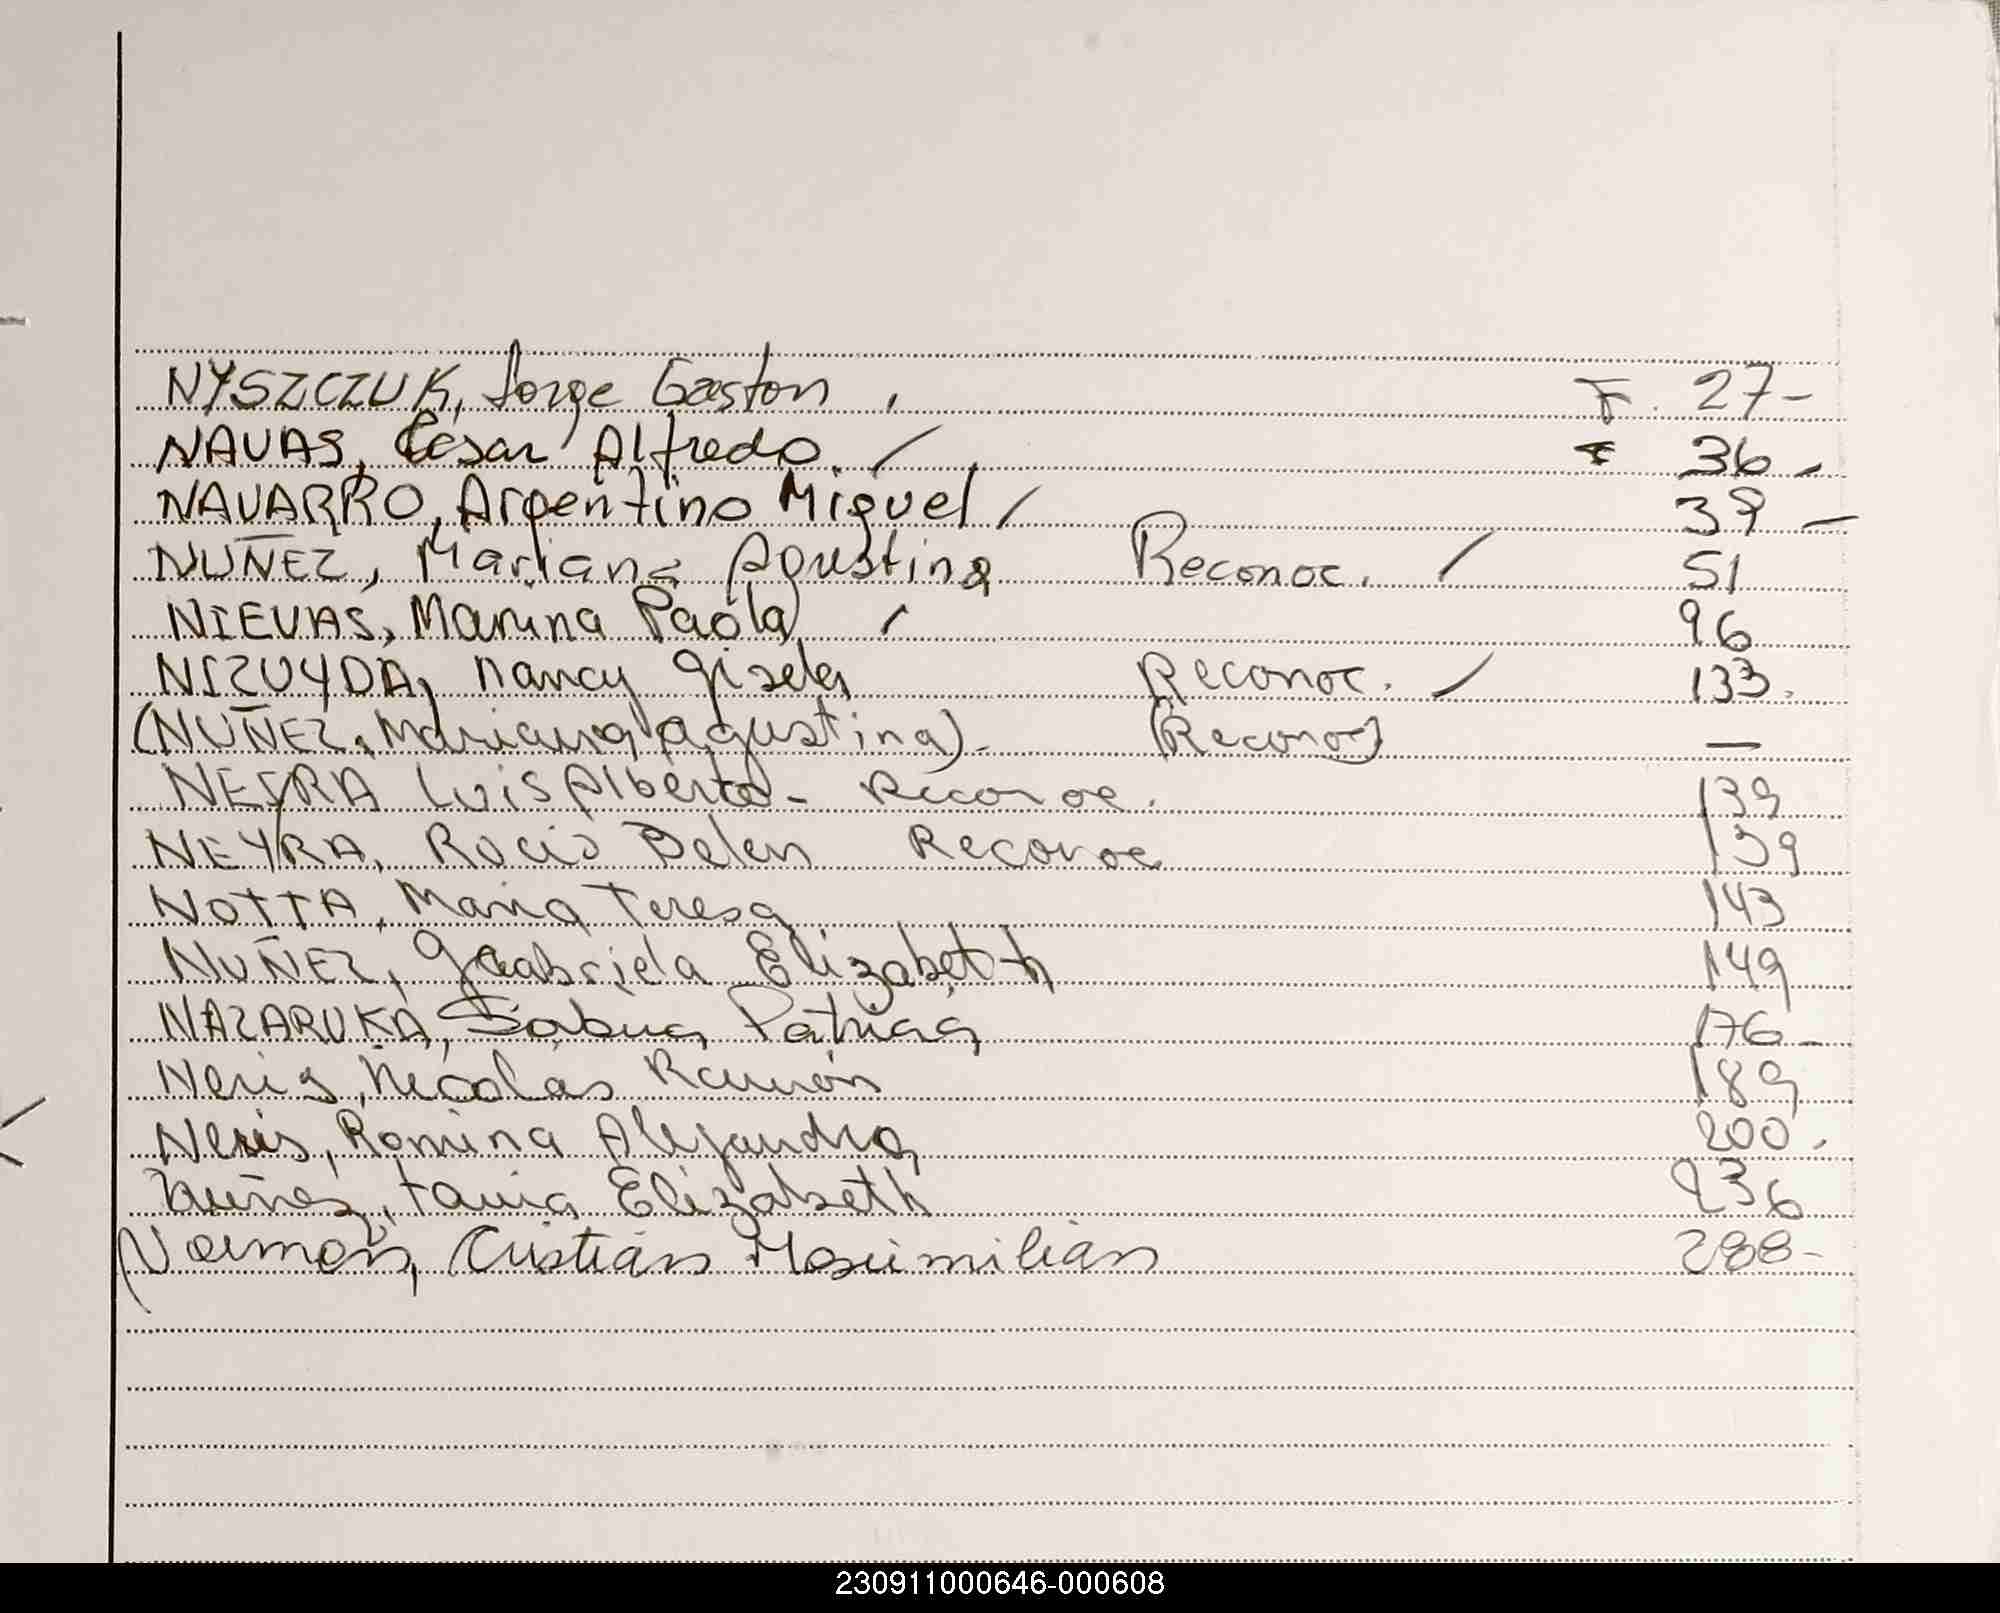 NYSZCZUK, Jorge Gaston , F. 27-
NAVAS, César Alfredo. / F 36 -
NAVARRO, Argentino Miguel / 39 -
NUÑEZ, Mariana Agustina Reconoc. / 51
NIEVAS, Marina Paola / 96
NIZUYDA, Nancy Gisela Reconoc. / 133.
(NUÑEZ, Mariana Agustina) - (Reconoc) —
NEYRA Luis Alberto - Reconoc. 139
NEYRA, Rocio Belen Reconoc 139
NOTTA, Maria Teresa 143
NUÑEZ, Gabriela Elizabeth 149
NAZARUKA, Sabina Patricia 176 -
Neris, Nicolas Ramón 189
Neris, Romina Alejandra 200.
Nuñez, Tania Elizabeth 236
Cristian Maximilian 288-
230911000646-000608